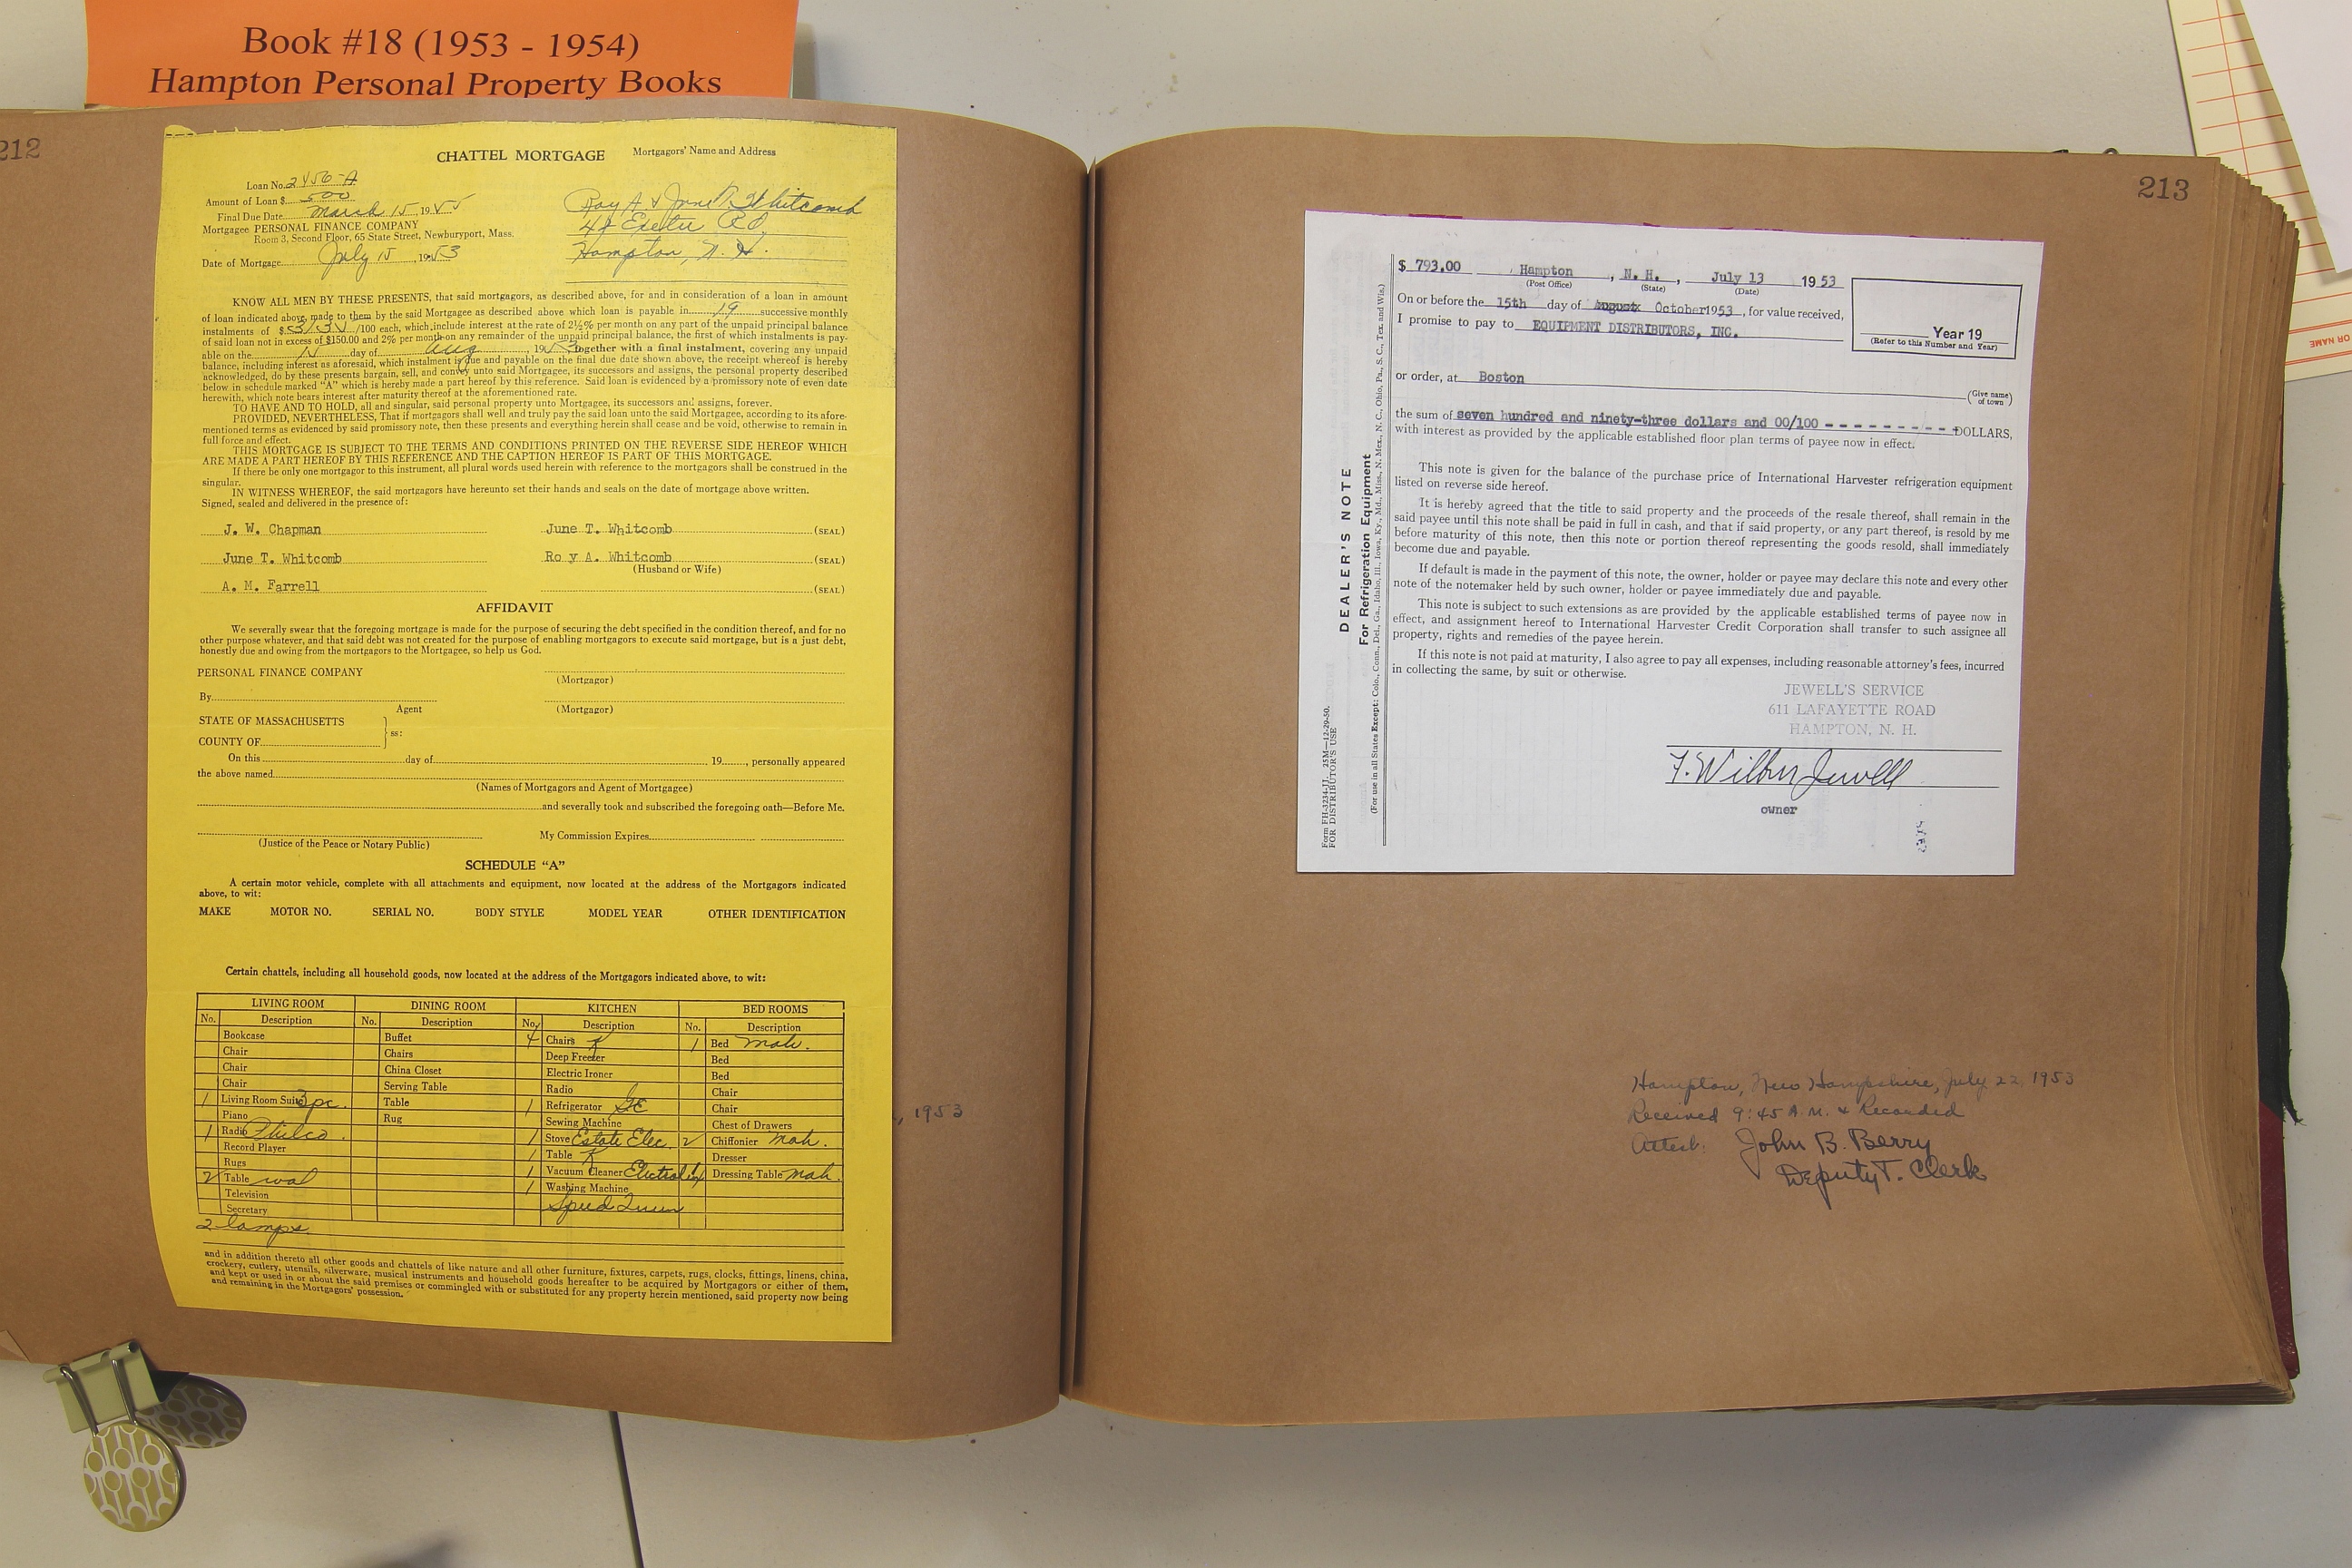 Book #18 (1953 - 1954)
Hampton Personal Property Books
212
CHATTEL MORTGAGE
Mortgagors' Name and Address
Loan No. 2456-A
Amount of Loan $ 500
Final Due Date March 15, 1955
Mortgagee PERSONAL FINANCE COMPANY
Room 3, Second Floor, 65 State Street, Newburyport, Mass.
Date of Mortgage July 15, 1953
Roy A & June T. Whitcomb
Exeter Rd,
Hampton, N. H.
KNOW ALL MEN BY THESE PRESENTS, that said mortgagors, as described above, for and in consideration of a loan in amount
of loan indicated above, made to them by the said Mortgagee as described above which loan is payable in 19 successive monthly
instalments of $ /100 each, which include interest at the rate of 2½% per month on any part of the unpaid principal balance
of said loan not in excess of $150.00 and 2% per month on any remainder of the unpaid principal balance, the first of which instalments is pay-
able on the 15 day of Aug, 1953, together with a final instalment, covering any unpaid
balance, including interest as aforesaid, which instalment is due and payable on the final due date shown above, the receipt whereof is hereby
acknowledged, do by these presents bargain, sell, and convey unto said Mortgagee, its successors and assigns, the personal property described
below in schedule marked "A" which is hereby made a part hereof by this reference. Said loan is evidenced by a promissory note of even date
herewith, which note bears interest after maturity thereof at the aforementioned rate.
TO HAVE AND TO HOLD, all and singular, said personal property unto Mortgagee, its successors and assigns, forever.
PROVIDED, NEVERTHELESS, That if mortgagors shall well and truly pay the said loan unto the said Mortgagee, according to its afore-
mentioned terms as evidenced by said promissory note, then these presents and everything herein shall cease and be void, otherwise to remain in
full force and effect.
THIS MORTGAGE IS SUBJECT TO THE TERMS AND CONDITIONS PRINTED ON THE REVERSE SIDE HEREOF WHICH
ARE MADE A PART HEREOF BY THIS REFERENCE AND THE CAPTION HEREOF IS PART OF THIS MORTGAGE.
If there be only one mortgagor to this instrument, all plural words used herein with reference to the mortgagors shall be construed in the
singular.
IN WITNESS WHEREOF, the said mortgagors have hereunto set their hands and seals on the date of mortgage above written.
Signed, sealed and delivered in the presence of:
J. W. Chapman June T. Whitcomb (SEAL)
June T. Whitcomb Ro y A. Whitcomb (SEAL)
(Husband or Wife)
A. M. Farrell (SEAL)
AFFIDAVIT
We severally swear that the foregoing mortgage is made for the purpose of securing the debt specified in the condition thereof, and for no
other purpose whatever, and that said debt was not created for the purpose of enabling mortgagors to execute said mortgage, but is a just debt,
honestly due and owing from the mortgagors to the Mortgagee, so help us God.
PERSONAL FINANCE COMPANY
(Mortgagor)
By
Agent (Mortgagor)
STATE OF MASSACHUSETTS
ss:
COUNTY OF
On this day of 19, personally appeared
the above named
(Names of Mortgagors and Agent of Mortgagee)
and severally took and subscribed the foregoing oath—Before Me.
My Commission Expires
(Justice of the Peace or Notary Public)
SCHEDULE "A"
A certain motor vehicle, complete with all attachments and equipment, now located at the address of the Mortgagors indicated
above, to wit:
MAKE MOTOR NO. SERIAL NO. BODY STYLE MODEL YEAR OTHER IDENTIFICATION
Certain chattels, including all household goods, now located at the address of the Mortgagors indicated above, to wit:
LIVING ROOM DINING ROOM KITCHEN BED ROOMS
No. Description No. Description No. Description No. Description
Bookcase Buffet 4 Chairs K 1 Bed Mah.
Chair Chairs Deep Freezer Bed
Chair China Closet Electric Ironer Bed
Chair Serving Table Radio Chair
1 Living Room Suite 3 pc. Table 1 Refrigerator GE Chair
Piano Rug Sewing Machine Chest of Drawers
1 Radio Philco. 1 Stove Estate Elec 2 Chiffonier Mah.
Record Player 1 Table K Dresser
Rugs 1 Vacuum Cleaner Electrolux 1 Dressing Table Mah.
2 Table wal 1 Washing Machine
Television Speed Queen
Secretary
2 lamps
and in addition thereto all other goods and chattels of like nature and all other furniture, fixtures, carpets, rugs, clocks, fittings, linens, china,
crockery, cutlery, utensils, silverware, musical instruments and household goods hereafter to be acquired by Mortgagors or either of them,
and kept or used in or about the said premises or commingled with or substituted for any property herein mentioned, said property now being
and remaining in the Mortgagors' possession.
, 1953
213
$ 793.00 Hampton, N. H., July 13 1953
(Post Office) (State) (Date)
On or before the 15th day of August October 1953, for value received,
I promise to pay to EQUIPMENT DISTRIBUTORS, INC.
Year 19
(Refer to this Number and Year)
or order, at Boston
(Give name of town)
the sum of seven hundred and ninety-three dollars and 00/100 - - - - - - - - - - DOLLARS,
with interest as provided by the applicable established floor plan terms of payee now in effect.
This note is given for the balance of the purchase price of International Harvester refrigeration equipment
listed on reverse side hereof.
It is hereby agreed that the title to said property and the proceeds of the resale thereof, shall remain in the
said payee until this note shall be paid in full in cash, and that if said property, or any part thereof, is resold by me
before maturity of this note, then this note or portion thereof representing the goods resold, shall immediately
become due and payable.
If default is made in the payment of this note, the owner, holder or payee may declare this note and every other
note of the notemaker held by such owner, holder or payee immediately due and payable.
This note is subject to such extensions as are provided by the applicable established terms of payee now in
effect, and assignment hereof to International Harvester Credit Corporation shall transfer to such assignee all
property, rights and remedies of the payee herein.
If this note is not paid at maturity, I also agree to pay all expenses, including reasonable attorney's fees, incurred
in collecting the same, by suit or otherwise.
JEWELL'S SERVICE
611 LAFAYETTE ROAD
HAMPTON, N. H.
F. Wilbur Jewell
owner
DEALER'S NOTE
For Refrigeration Equipment
(For use in all States Except: Colo., Conn., Del., Ga., Idaho, Ill., Iowa, Ky., Md., Miss., N. Mex., N. C., Ohio, Pa., S. C., Tex. and Wis.)
Form FH-3234-JJ. 25M—12-29-50.
FOR DISTRIBUTOR'S USE
Hampton, New Hampshire, July 22, 1953
Received 9:45 A.M. & Recorded
Attest: John B. Berry
Deputy T. Clerk
OR NAME